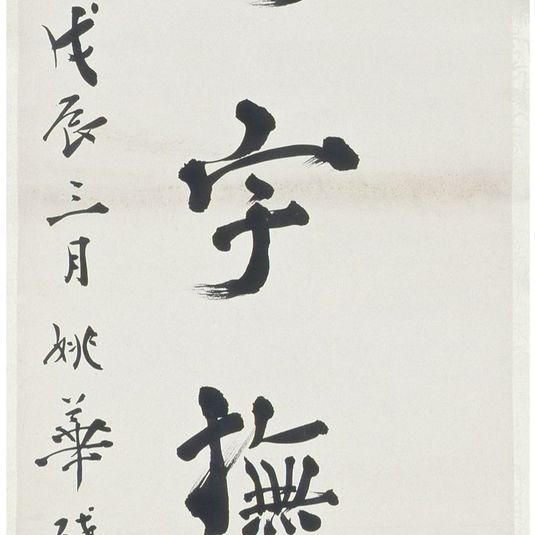 字撫
戊辰三月姚華